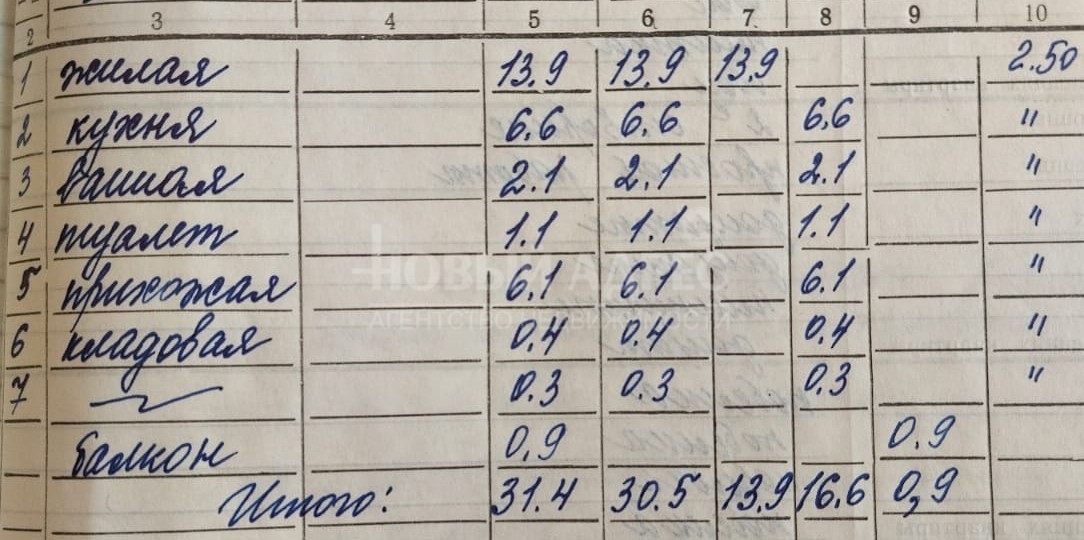 2 3 4 5 6 7 8 9 10
1 жилая 13.9 13.9 13.9 2.50
2 кухня 6.6 6.6 6.6 "
3 ванная 2.1 2.1 2.1 "
4 туалет 1.1 1.1 1.1 "
НОВЫЙ АДРЕС
5 прихожая 6.1 6.1 6.1 "
АГЕНТСТВО НЕДВИЖИМОСТИ
6 кладовая 0.4 0.4 0.4 "
7 0.3 0.3 0.3 "
балкон 0.9 0.9
Итого: 31.4 30.5 13.9 16.6 0,9